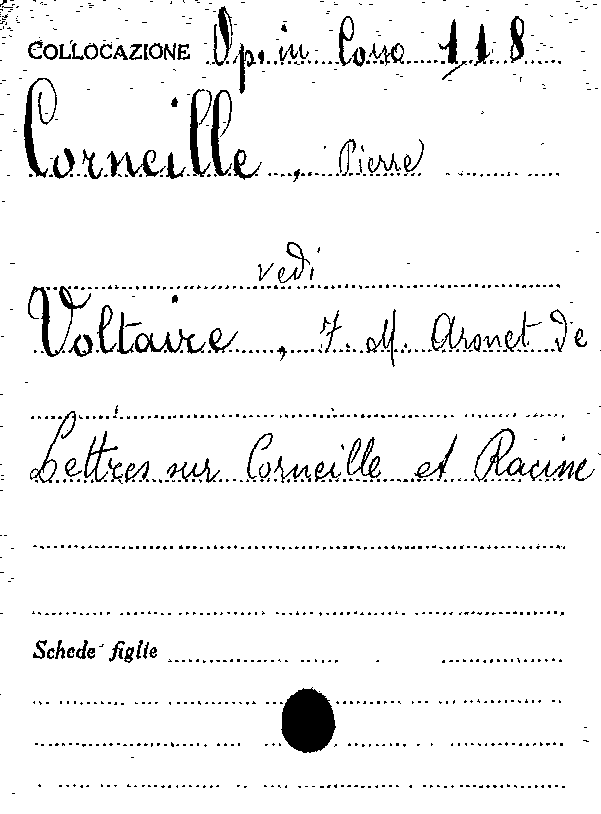 COLLOCAZIONE Op. in Corso 118
Corneille, Pierre
vedi
Voltaire, F. M. Aronet de
Lettres sur Corneille et Racine
Schede figlie